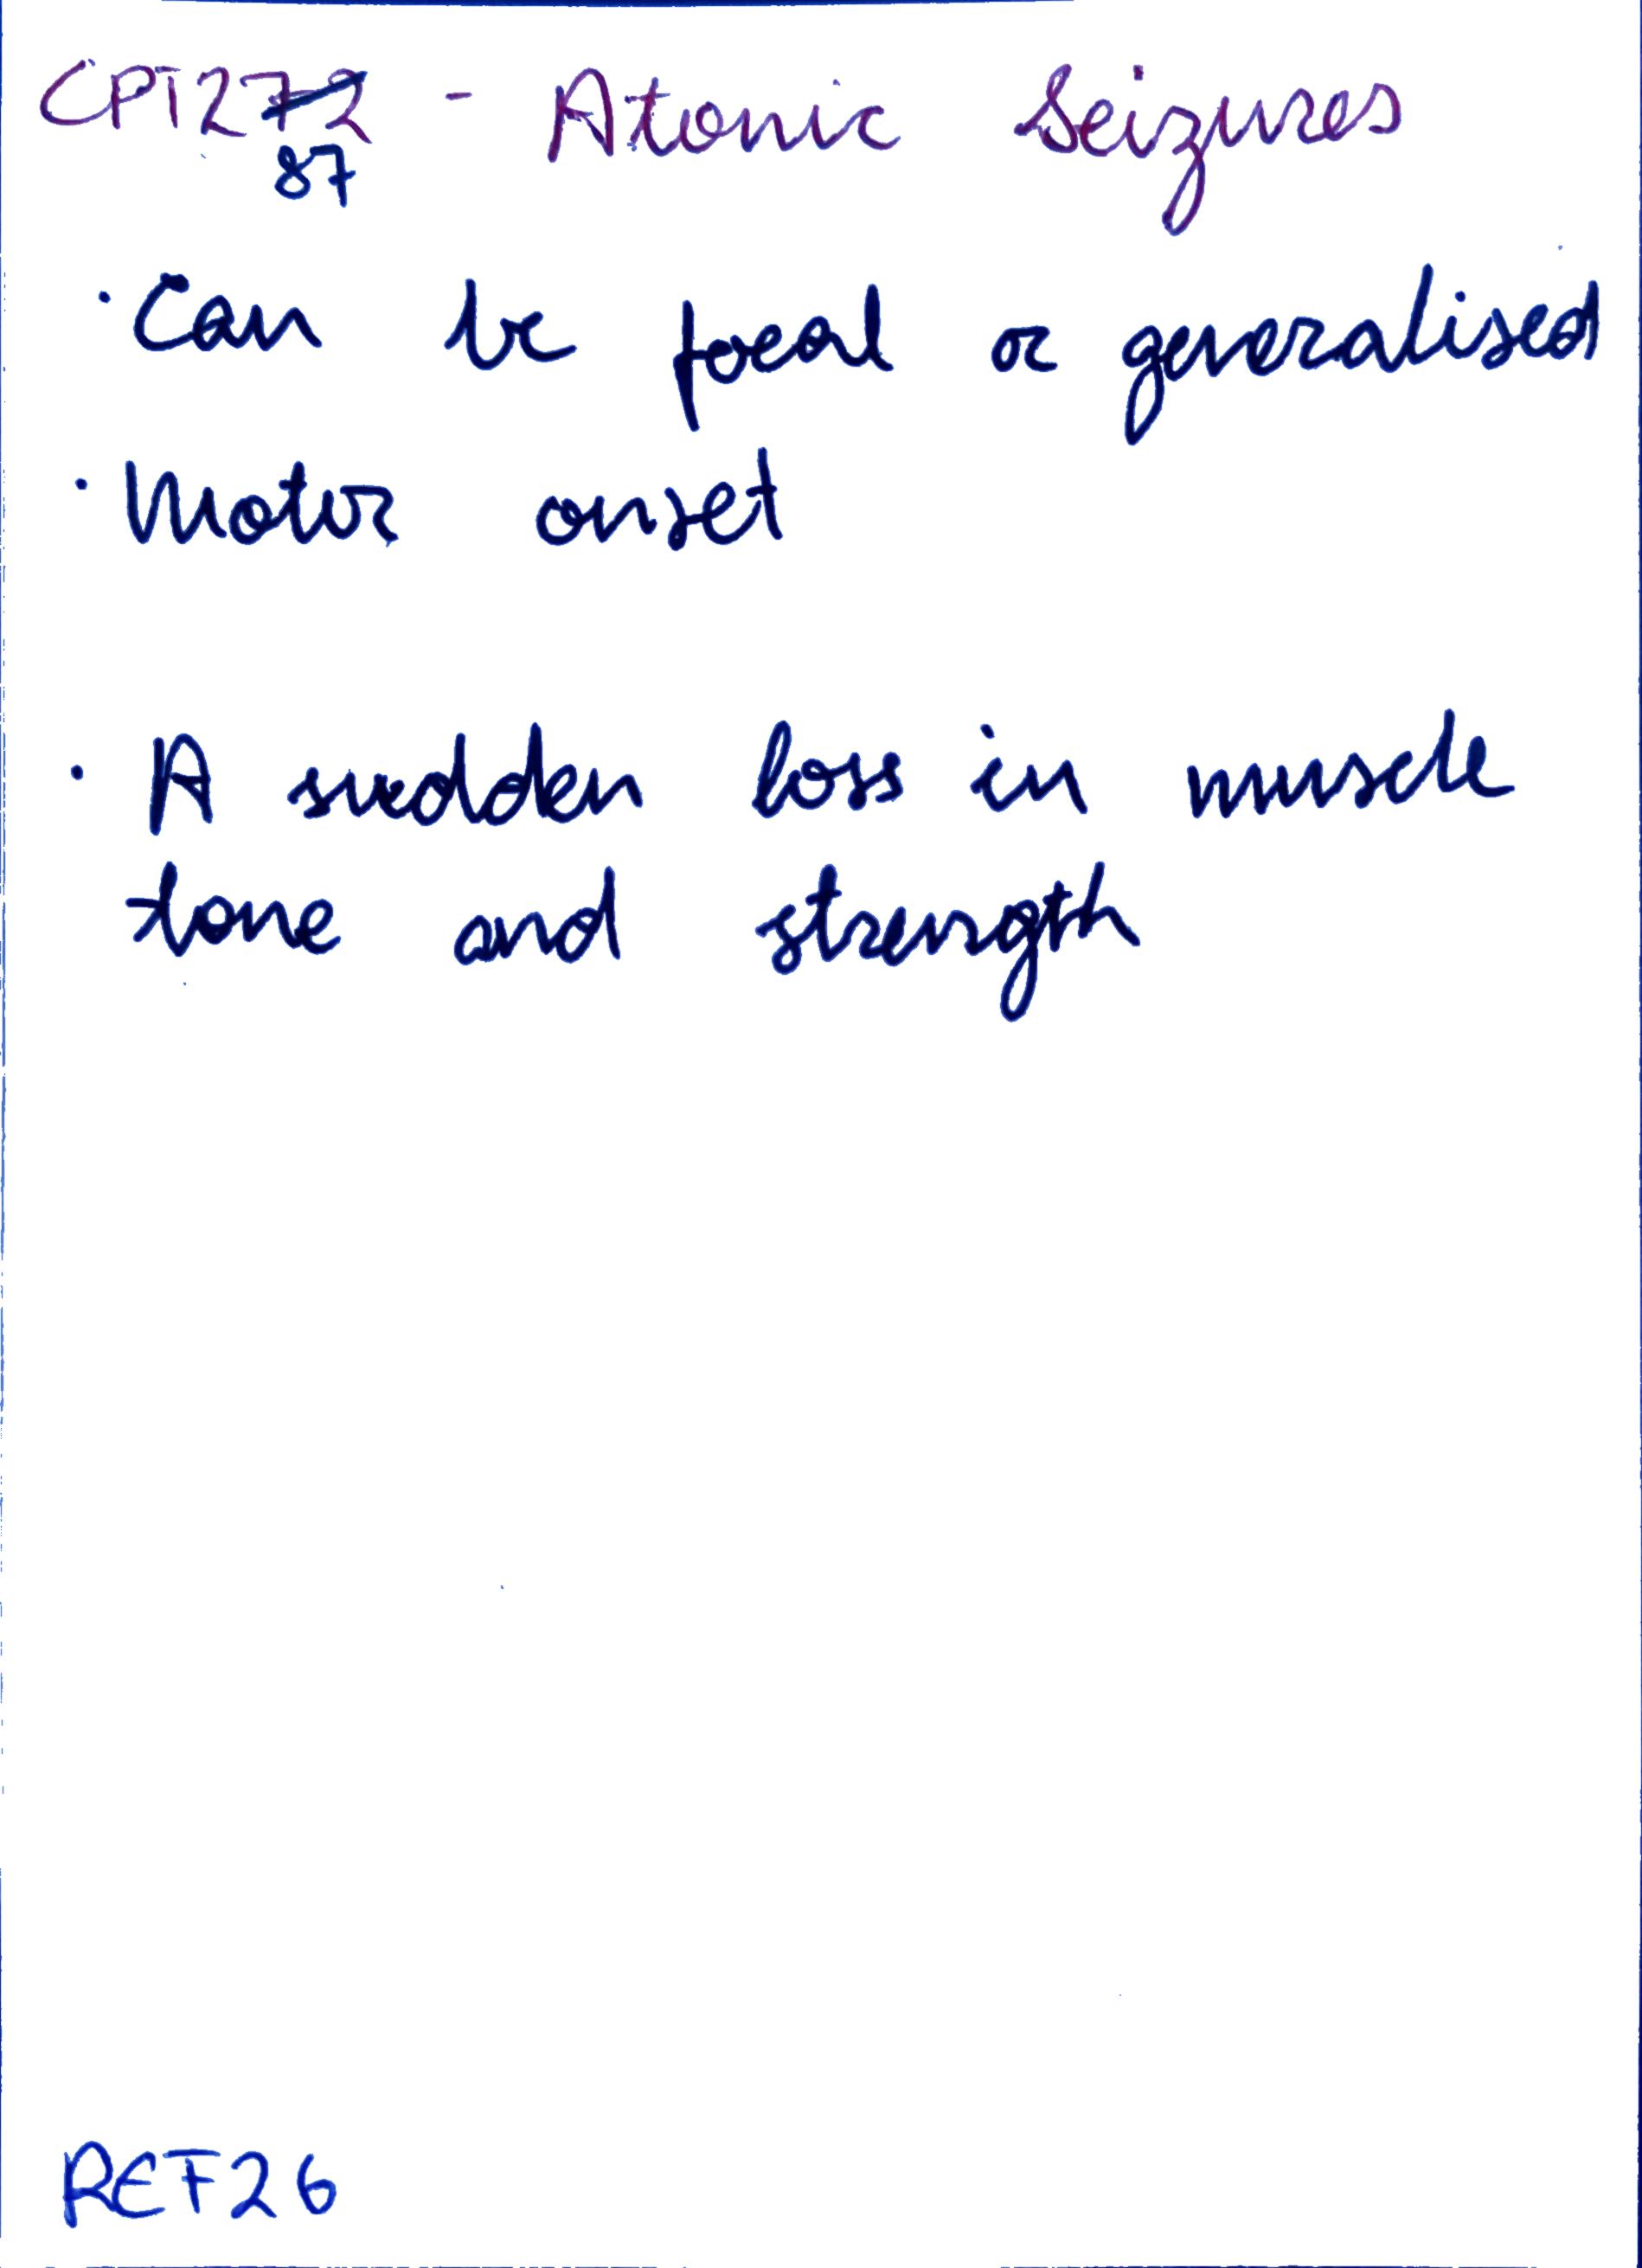 CPT272 - Atonic Seizures
87
· Can be focal or generalised
· Motor onset
· A sudden loss in muscle
tone and strength
REF26